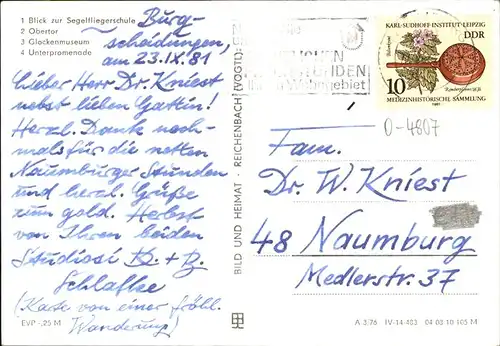 1 Blick zur Segelfliegerschule
2 Obertor
3 Glockenmuseum
4 Unterpromenade
Burg-
scheidungen,
am 23.IX.81
Lieber Herr Dr. Kniest
nebst lieben Gattin!
Herzl. Dank noch-
mals für die netten
Naumburger Stunden
und herzl. Grüße
zum gold. Herbst
von Ihren beiden
Studiosi K. + B.
Schlaffke
(Karte von einer fröhl.
Wanderung)
EVP -,25 M
BILD UND HEIMAT · REICHENBACH (VOGTL)
KARL-SUDHOFF-INSTITUT·LEIPZIG
DDR
10
MEDIZINHISTORISCHE SAMMLUNG
1981
Wohngebiet
O-4807
Fam.
Dr. W. Kniest
48 Naumburg
Medlerstr. 37
A 3/76 IV-14-483 04 03 10 105 M